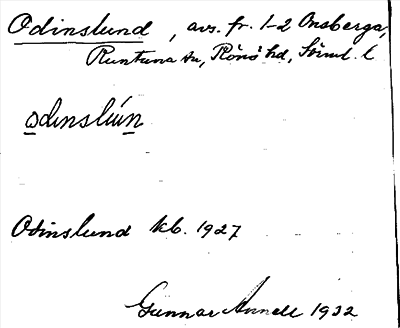 Odinslund, avs. fr. 1-2 Onsberga,
Runtuna sn, Rönö hd, Söderml. l
odinslún
Odinslund kb. 1927
Gunnar Annell 1932